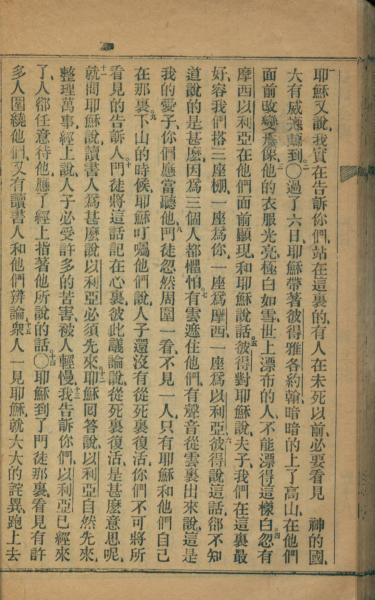 耶穌又說、我實在告訴你們、站在這裏的、有人在未死以前、必要看見 神的國、
大有威權臨到○過了六日、耶穌帶著彼得雅各約翰、暗暗的上了高山、在他們
面前改變形像、他的衣服光亮、極白如雪、世上漂布的人、不能漂得這樣白、忽有
摩西以利亞、在他們面前顯現、和耶穌說話、彼得對耶穌說、夫子、我們在這裏最
好、容我們搭三座棚、一座爲你、一座爲摩西、一座爲以利亞、彼得說這話、卻不知
道說的是甚麽、因爲三個人都懼怕、有雲遮住他們、有聲音從雲裏出來說、這是
我的愛子、你們應當聽他、門徒忽然周圍一看、不見一人、只有耶穌和他們自己
在那裏、下山的時候、耶穌叮囑他們說、人子還沒有從死裏復活、你們不可將所
看見的告訴人、門徒將這話記在心裏、彼此議論說、從死裏復活、是甚麽意思呢、
就問耶穌說、讀書人爲甚麽說、以利亞必須先來、耶穌回答說、以利亞自然先來、
整理萬事、經上說、人子必受許多的苦害、被人輕慢、我告訴你們、以利亞已經來
了、人卻任意待他、應了經上指著他所說的話、○耶穌到了門徒那裏、看見有許
多人圍繞他們、又有讀書人和他們辨論、衆人一見耶穌、就大大的詫異、跑上去